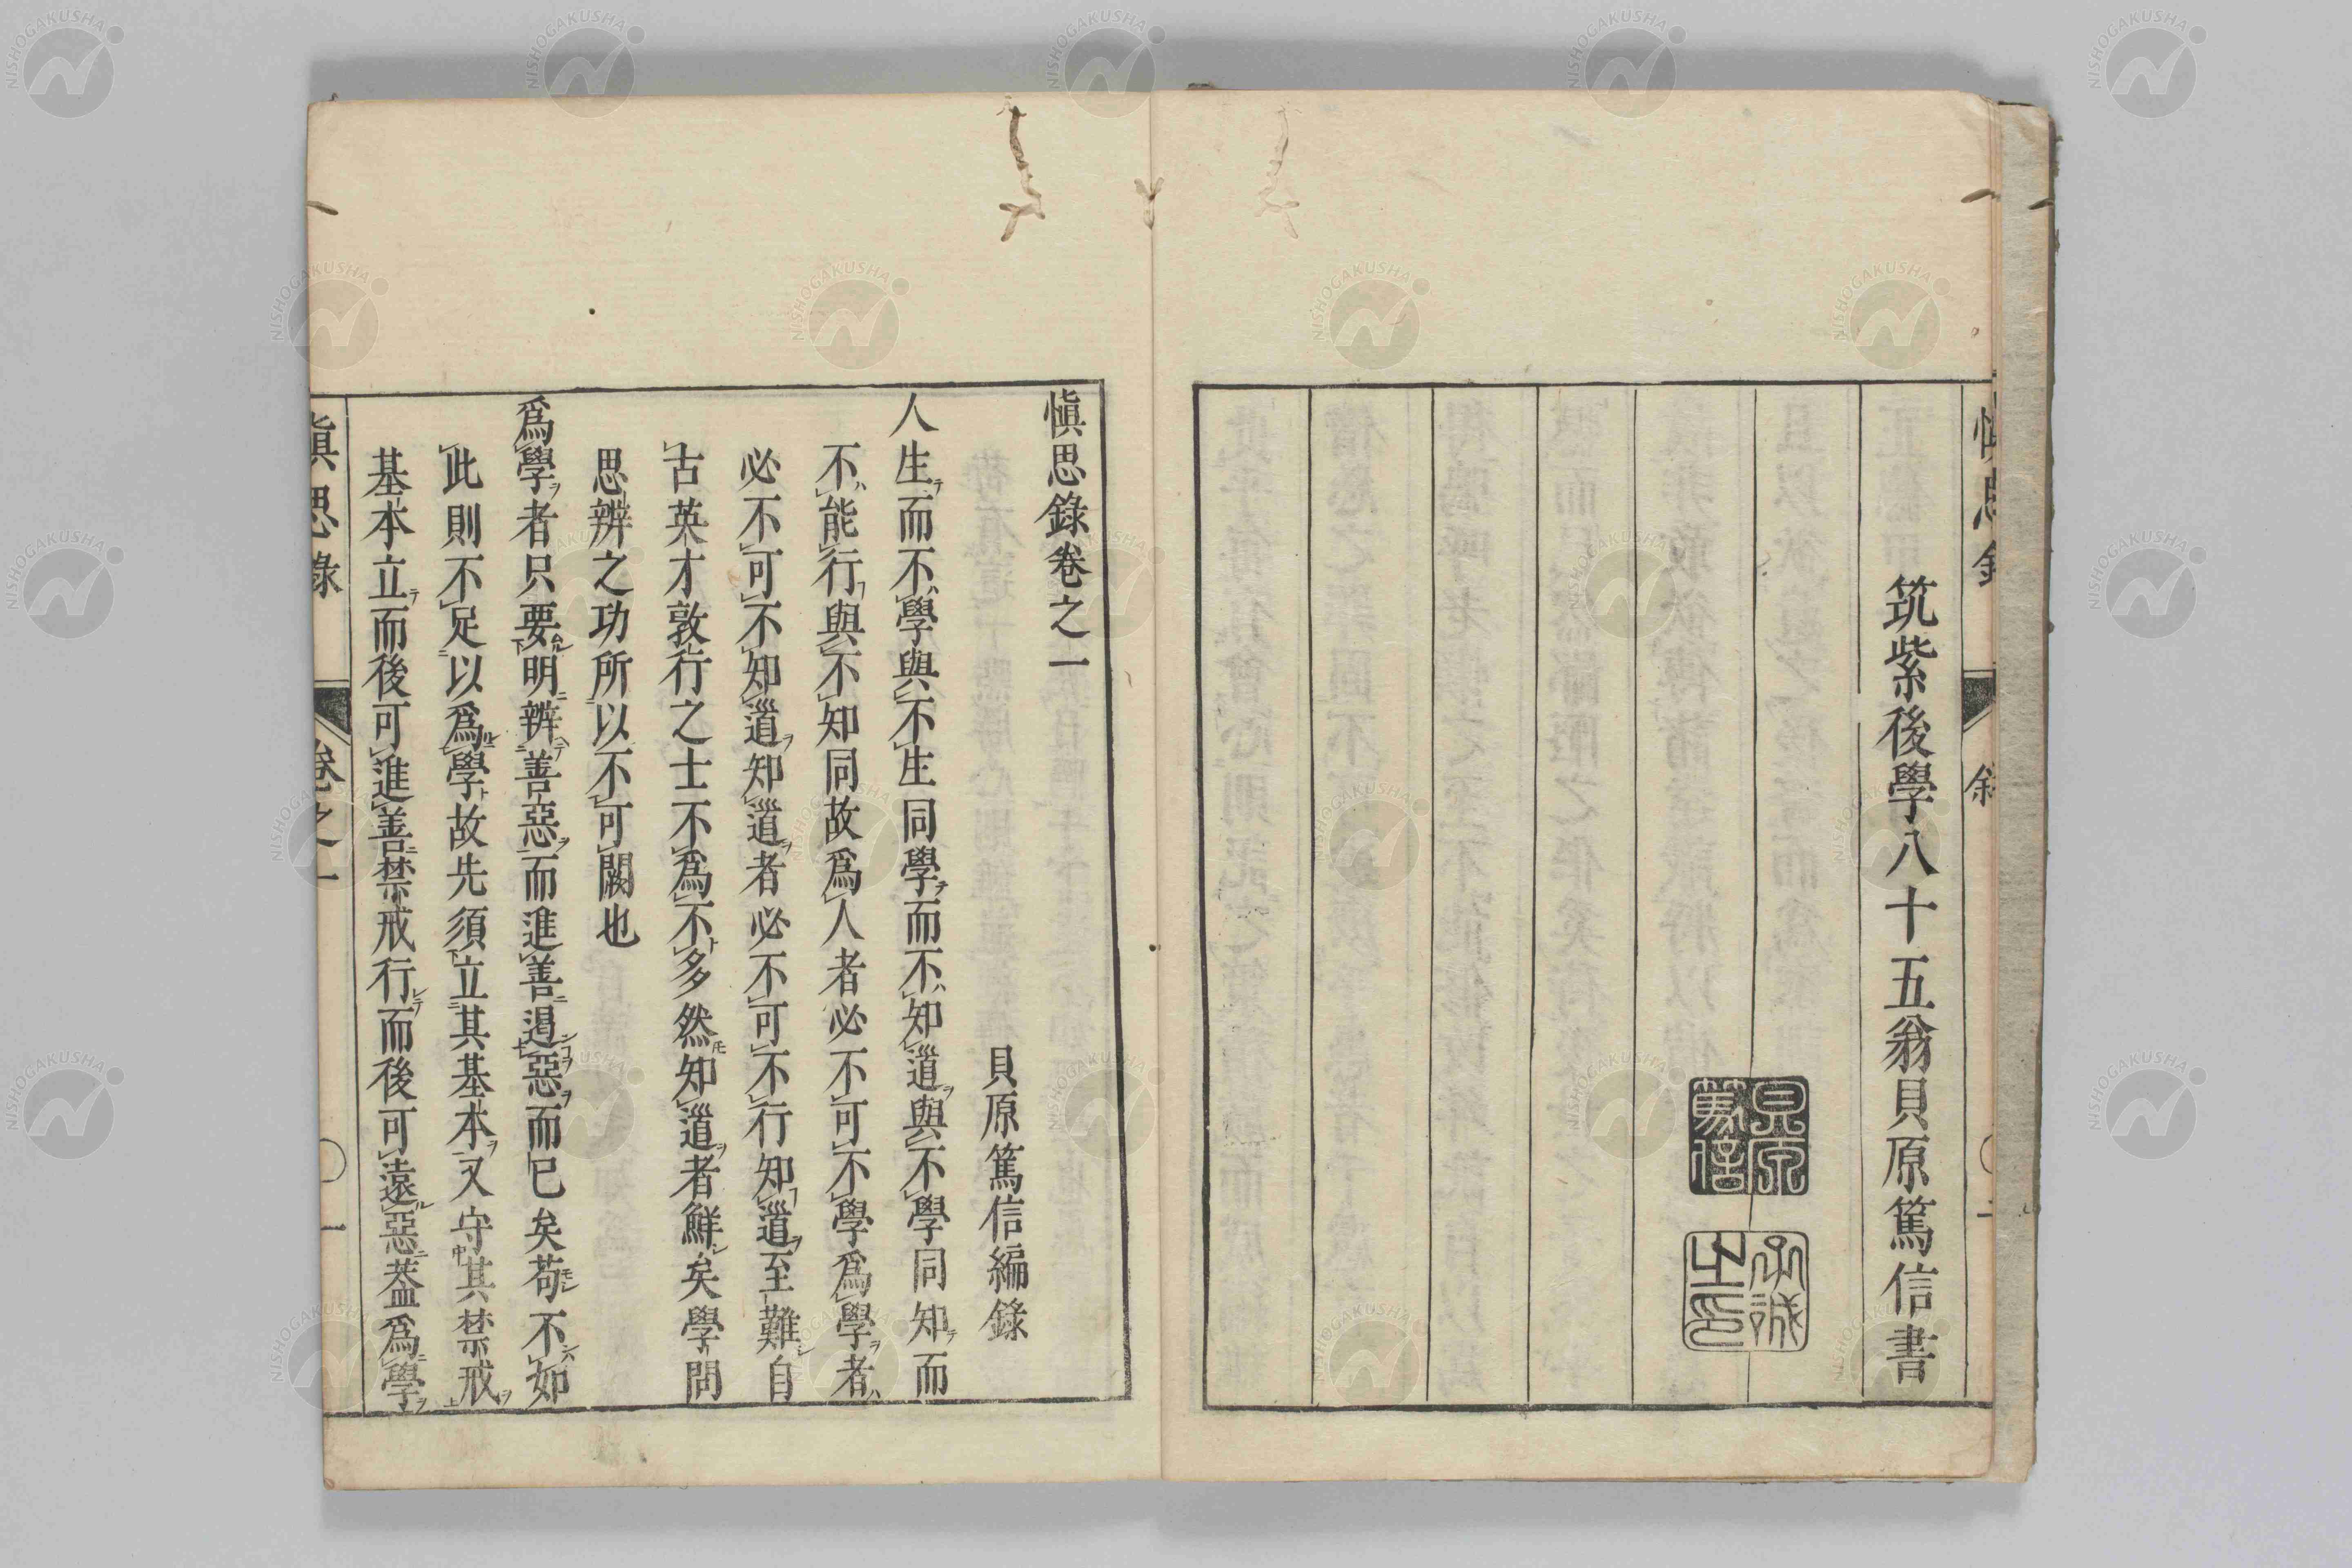 筑紫後學八十五翁貝原篤信書
貝原
篤信
子誠
之印
愼思錄卷之一
貝原篤信編錄
人生而不學與不生同學而不知道與不學同知而
不能行與不知同故爲人者必不可不學爲學者
必不可不知道知道者必不可不行知道至難自
古英才敦行之士不爲不多然知道者鮮矣學問
思辨之功所以不可闕也
爲學者只要明辨善惡而進善遏惡而已矣苟不如
此則不足以爲學故先須立其基本又守其禁戒
基本立而後可進善禁戒行而後可遠惡蓋爲學
愼思錄
卷之一
一
NISHOGAKUSHA